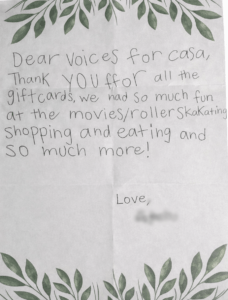 Dear voices for casa,
Thank YOU ffor all the
giftcards, we had so much fun
at the movies/rollerskakating
shopping and eating and
so much more!
Love,